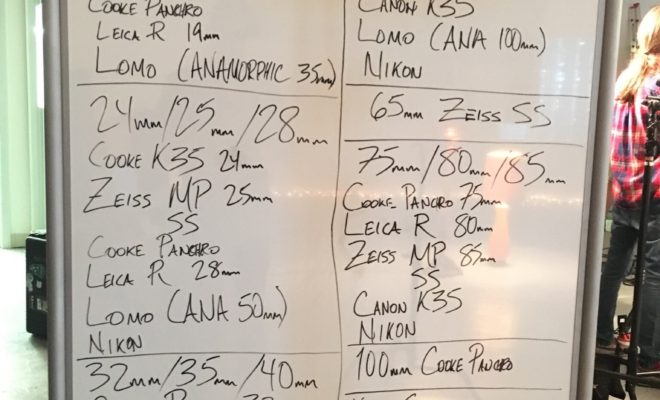 COOKE PANCHRO
LEICA R 19mm
LOMO (ANAMORPHIC 35mm)
24mm/25mm/28mm
COOKE K35 24mm
ZEISS MP 25mm
SS
COOKE PANCHRO
LEICA R 28mm
LOMO (ANA 50mm)
NIKON
32mm/35mm/40mm
CANON K35
LOMO (ANA 100mm)
NIKON
65mm ZEISS SS
75mm/80mm/85mm
COOKE PANCRO 75mm
LEICA R 80mm
ZEISS MP 85mm
SS
CANON K35
NIKON
100mm COOKE PANCRO